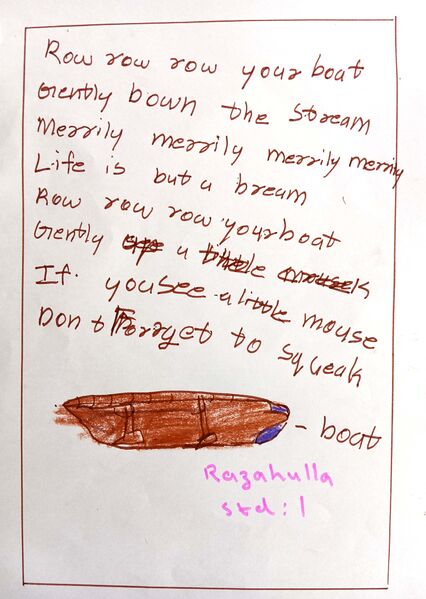 Row row row your boat
Gently bown the stream
Merrily merrily merrily merrily
Life is but a bream
Row row row your boat
Gently a little
If you see a little mouse
Don t Forrget to squeak
- boat
Razahulla
std : 1